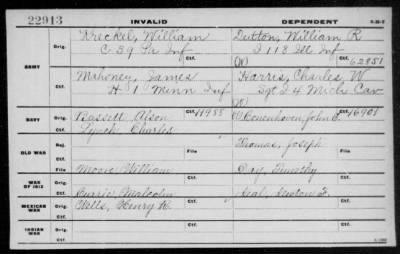 22913 INVALID DEPENDENT
ARMY
Orig. Kreckel, William Ctf. Dutton, William R Ctf.
C 59 Pa Inf I 118 Ill Inf
(W) 62851
Ctf. Mahoney, James Orig. Harris, Charles W Orig.
H 1 Minn Inf Sgt I 4 Mich Cav
(W)
NAVY
Orig. Bassett, Ctf. 11988 (W) Couenhoven, John Ctf. 16901
Ctf. Lynch, Charles Orig. Orig.
OLD WAR
Rej. File Thomas, Joseph File
Ctf. Moore, William Day, Timothy
WAR OF 1812
Orig. Currie, Malcolm Ctf. Neal, Newton Ctf.
Ctf.
MEXICAN WAR
Orig. Wells, Henry Ctf. Ctf.
Ctf.
INDIAN WAR
Orig.
Ctf.